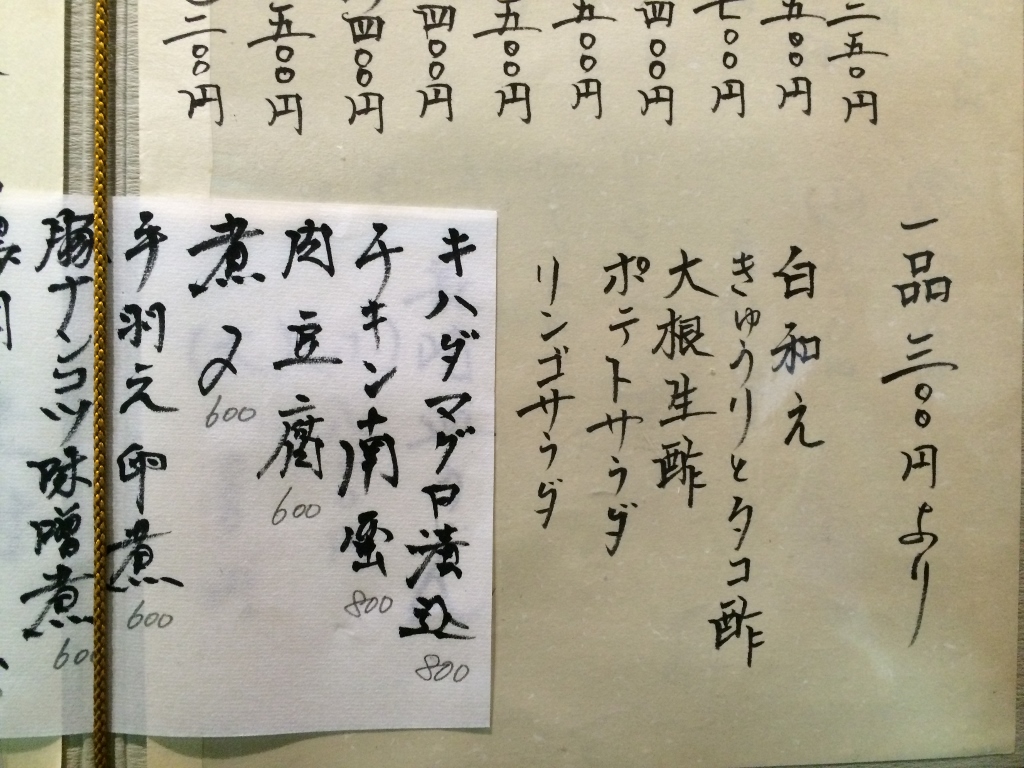 五〇円
五〇〇円
〇〇円
四〇〇円
五〇〇円
五〇〇円
四〇〇円
四〇〇円
五〇〇円
〇〇円
一品三〇〇円より
白和え
きゅうりとタコ酢
大根生酢
ポテトサラダ
リンゴサラダ
キハダマグロ漬込 800
チキン南蛮 800
肉豆腐 600
煮〆 600
手羽元卵煮 600
豚ナンコツ味噌煮 600